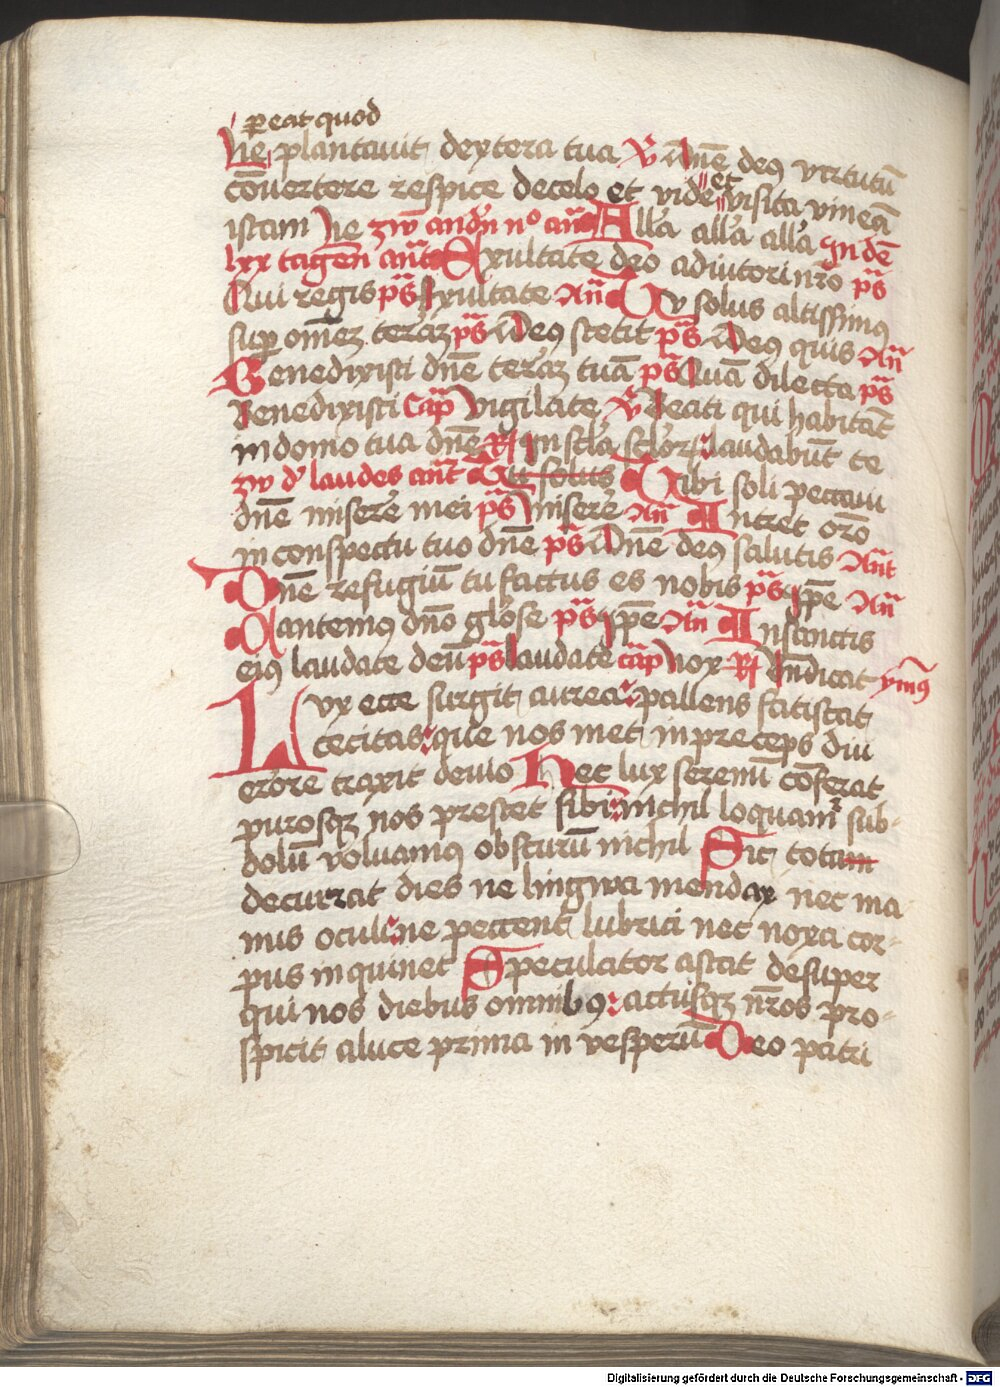 pereat quod
Ne plantauit dextera tua V̄ Dn̄e deꝰ vırtutū
cōuertere respice decelo et vide et visita vineā
istam Ne zw̄ andn̄ nº an̄ Alla alla alla In dē
lxx tagen̄ ant̄ Exultate deo adiutori nr̄o p̄s
Qui regis p̄s Exultate An̄ Tu solus altissimꝰ
sup om̄ez terāz p̄s Deꝰ stetit p̄s Deꝰ quis An̄
Benedixisti dn̄e terāz tuā p̄s Quā dilecta p̄s
Benedixisti Cap̄ Vigilate V̄ Beati qui habitāt
in domo tua dn̄e R̄ In scl̄a scl̄or laudabūt te
zw d' laudes ant̄ Tu solus Tibi soli peccaui
dn̄e miserē mei p̄s Miserē An̄ Intret or̄o
in conspectu tuo dn̄e p̄s Dn̄e deꝰ salutis Ant̄
Dn̄e refugiū tu factus es nobis p̄s ip̄e An̄
Cantemꝰ dn̄o gloīse p̄s ip̄e An̄ In sanctis
eiꝰ laudate deū p̄s laudate cap̄ Nox R̄ Dn̄dicat ym̄ꝰ
Lux ecce surgit aurea pallens fatiscat
cecitas que nos met in preceps diu
errore traxit deuio Hec lux serenū cōferat
purosqꝫ nos prestet sibi nichil loquamr sub-
dolū voluamꝰ obscurū nichil Sic tota
decurrat dies ne lingwa mendax nec ma-
nus oculi ne peccent lubrici nec noxa cor-
pus inquinet Speculator astat desuper
qui nos diebus omnibꝰ actusqꝫ nr̄os pro-
spicit aluce prima in vesperū Deo patri
Digitalisierung gefördert durch die Deutsche Forschungsgemeinschaft - DFG